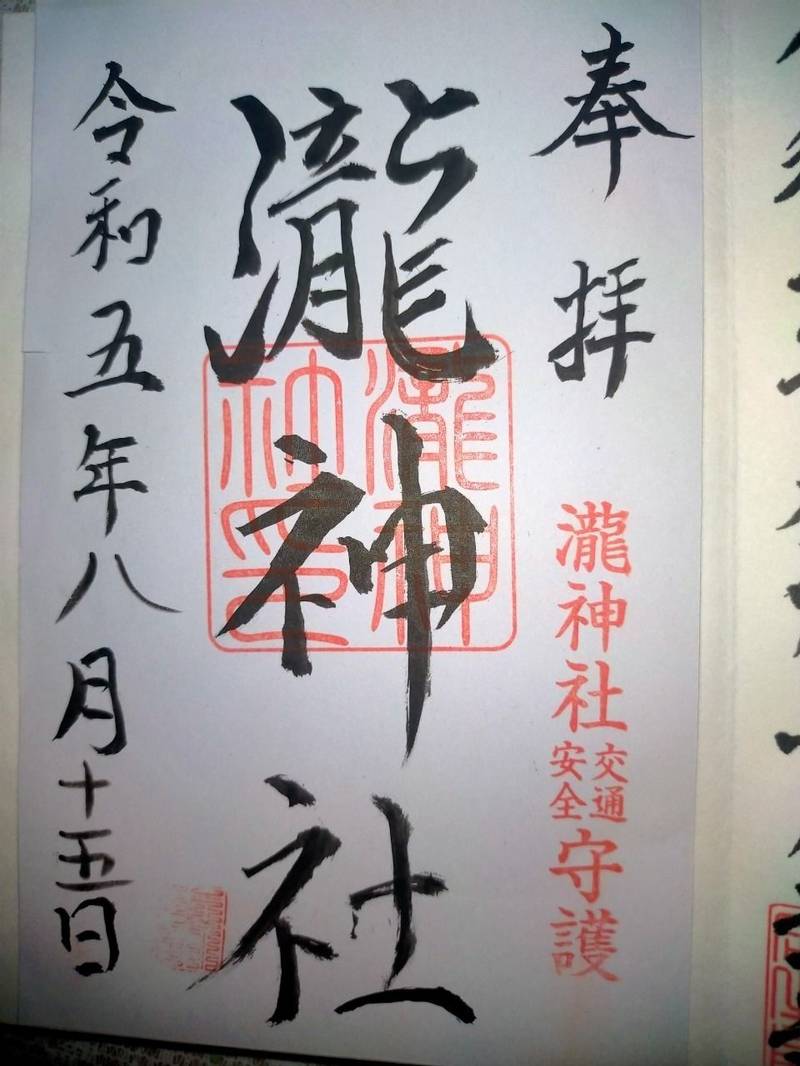 奉拝
瀧神社
交通安全
守護
瀧神社
瀧神社印
令和五年八月十五日